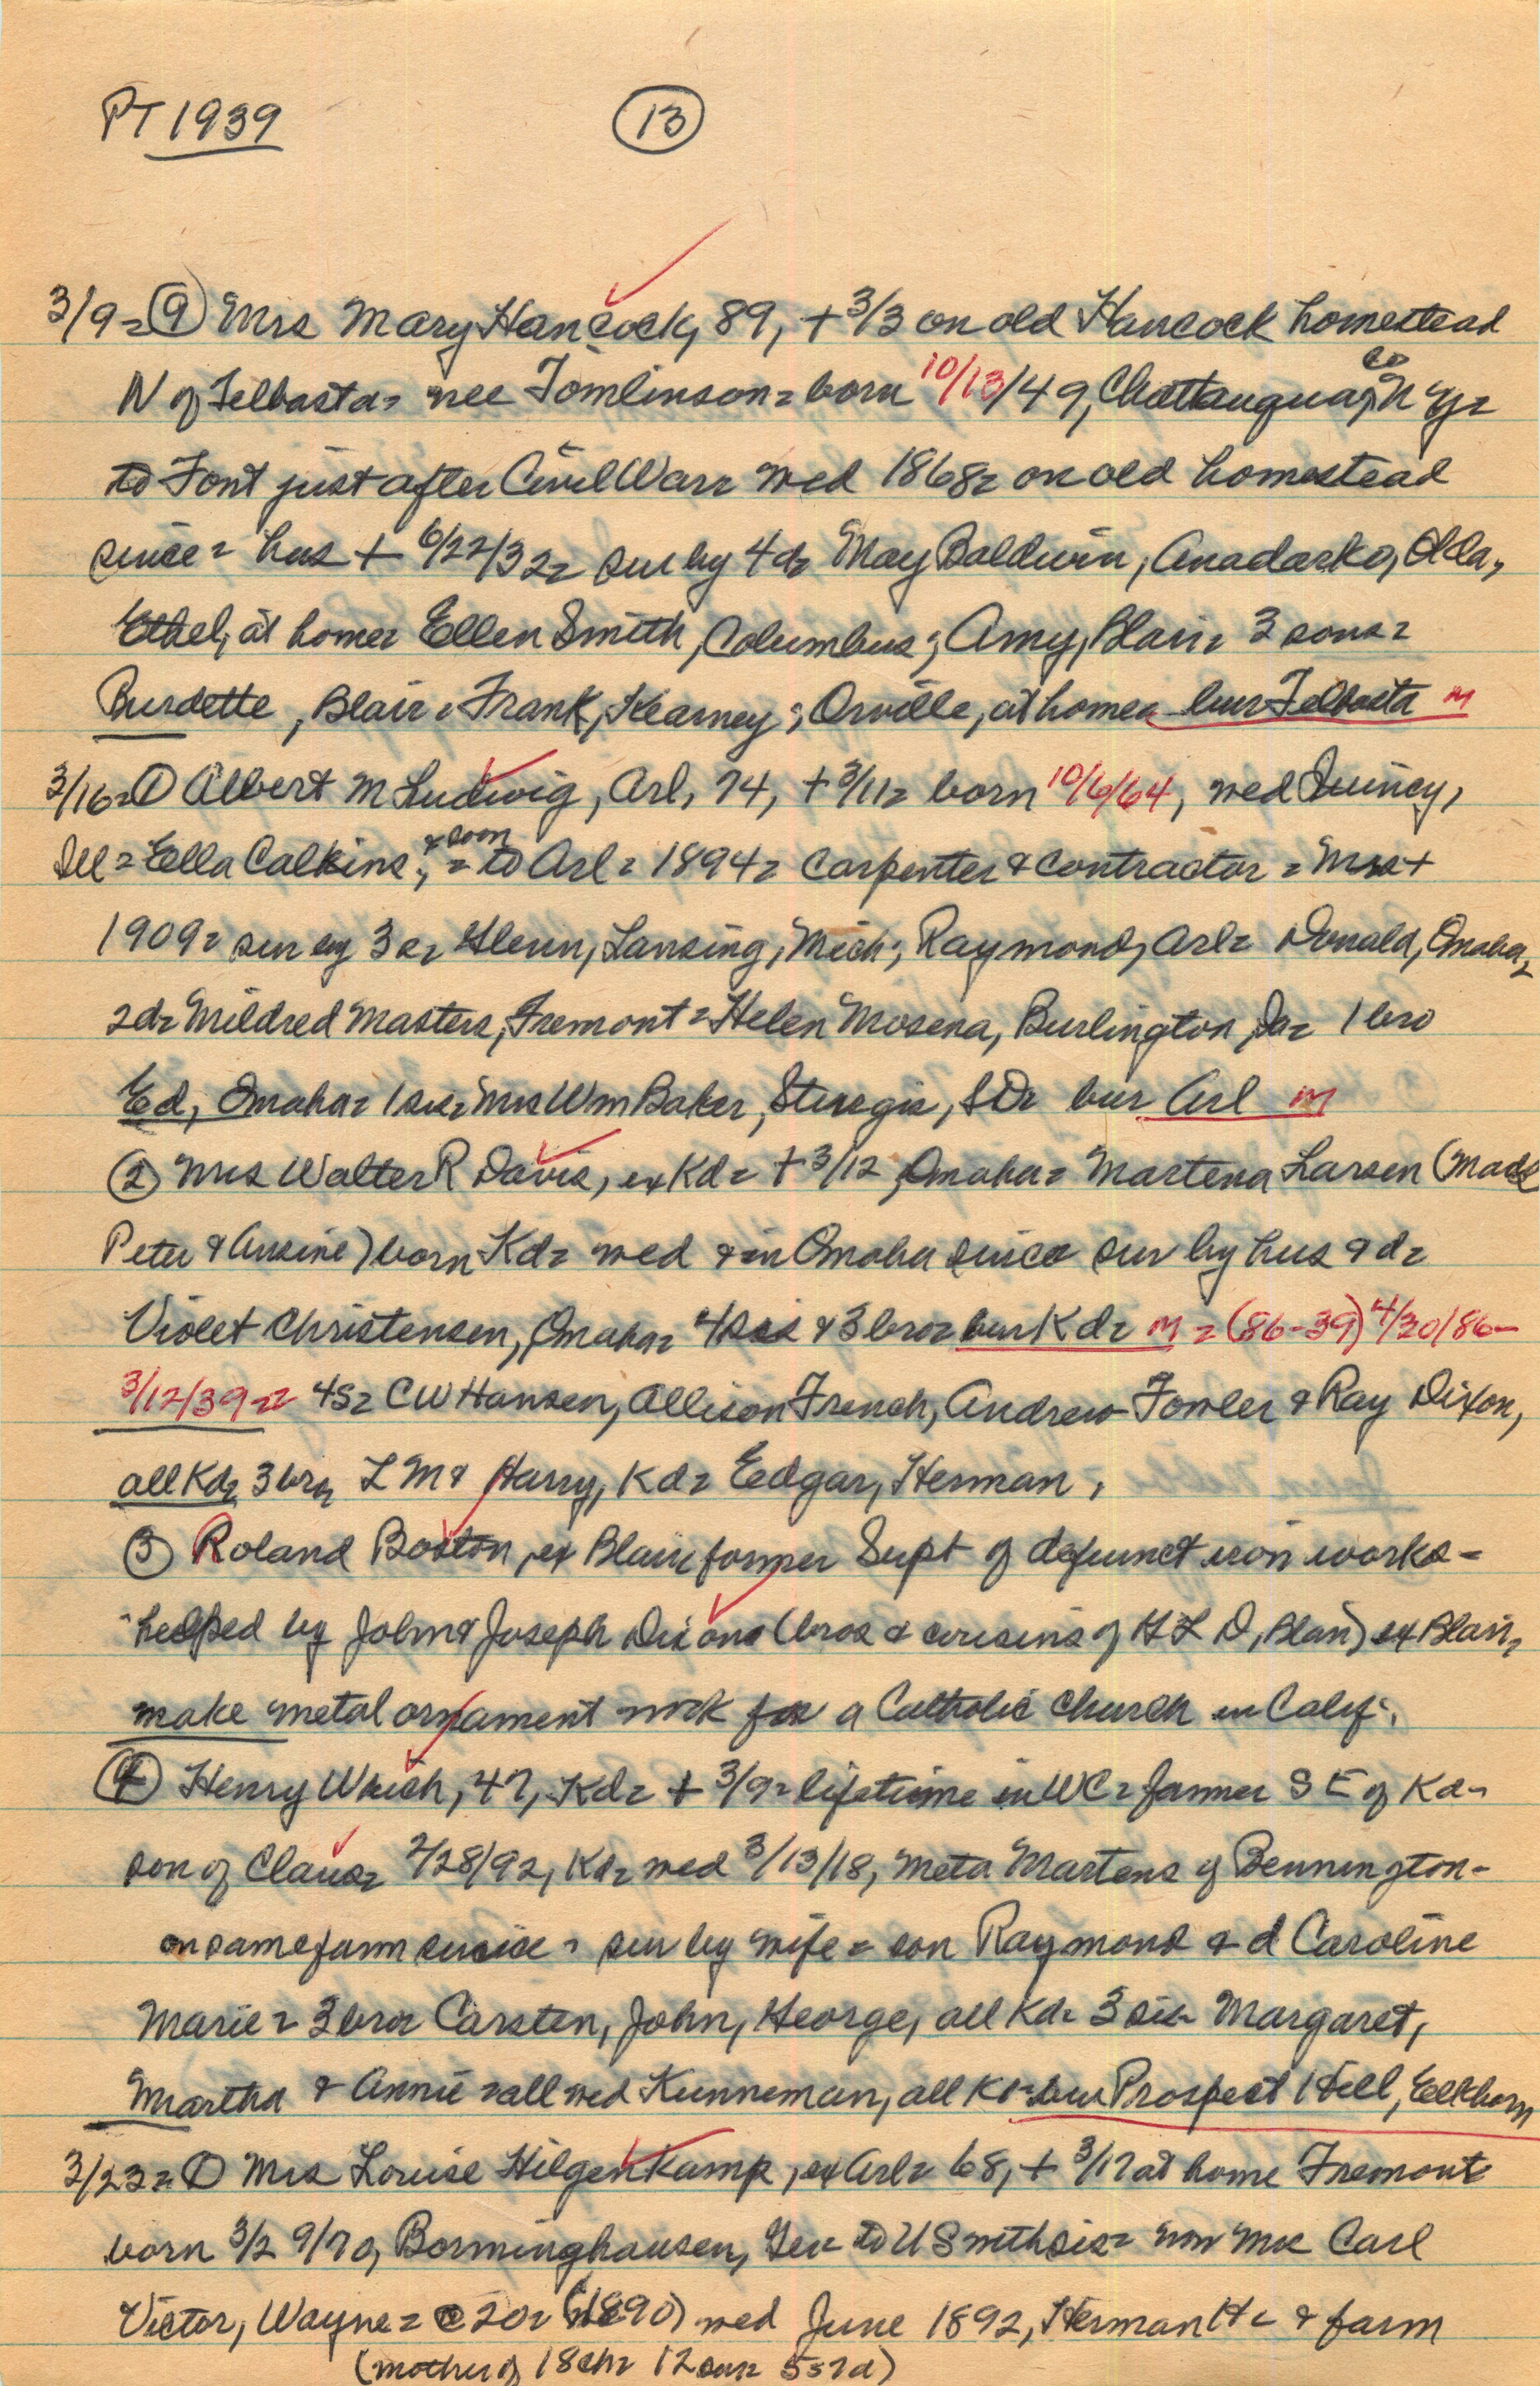 PT 1939 (13)
3/9= (9) Mrs Mary Hancock, 89, + 3/3 on old Hancock homestead
N of Telbasta= nee Tomlinson= born 10/13/49, Chattauqua Co, N Y=
to Font just after Civil War= wed 1868= on old homestead
since= hus + 6/22/32= sur by 4d= May Baldwin, Anadarko, Okla,
Ethel, at home= Ellen Smith, Columbus; Amy, Blair= 3 sons=
Burdette, Blair= Frank, Kearney; Orville, at home= bur Telbasta m
3/16= (1) Albert M Ludwig, Arl, 74, + 3/11= born 10/6/64, wed Quincy,
Ill= Ella Calkins, & soon = to Arl= 1894= carpenter & contractor= Mrs +
1909= sur by 3s= Glenn, Lansing, Mich; Raymond, Arl= Donald, Omaha,
2d= Mildred Masters, Fremont= Helen Mosena, Burlington, Ia= 1 bro
Ed, Omaha= 1 sis= Mrs Wm Baker, Sturgis, SD= bur Arl m
(2) Mrs Walter R Davis, ex Kd= + 3/12, Omaha= Martena Larsen (
Peter & Ansine) born Kd= wed & in Omaha since sur by hus & d=
Violet Christensen, Omaha= 4 sis & 3 bro= bur Kd= m = (86-39) 4/30/86-
3/12/39= 4s= C W Hansen, Allison French, Andrew Fowler & Ray Dixon,
all Kd= 3 bro= L M & Harry, Kd= Edgar, Herman,
(3) Roland Boston, ex Blair former Supt of defunct iron works-
helped by John & Joseph Dixons (bros & cousins of H L D, Blair) ex Blair,
make metal ornament work for a Catholic Church in Calif.
(4) Henry Wrich, 47, Kd= + 3/9= lifetime in WC= farmer S E of Kd-
son of Claus= 2/28/92, Kd= wed 3/13/18, Meta Martens of Bennington-
on same farm since= sur by wife= son Raymond & d Caroline
Marie= 3 bro= Carsten, John, George, all Kd= 3 sis- Margaret,
Martha & Annie= all wed Kunneman, all Kd= bur Prospect Hill, Elkhorn
3/23= (1) Mrs Louise Hilgenkamp, ex Arl= 68, + 3/17 at home Fremont
born 3/29/70, Borminghausen, Ger to U S with sis= now Mrs Carl
Victor, Wayne= @ 20= (1890) wed June 1892, Herman H= & farm
(mother of 18 ch= 12 sur= 5s 7d)